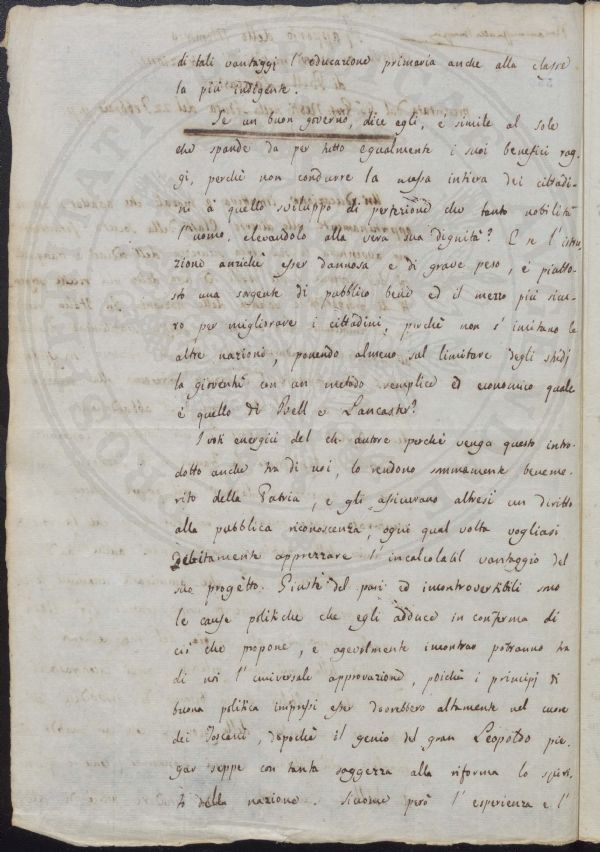 di tali vantaggi l'educazione primaria anche alla classe
la più indigente.
Se un buon governo, dice egli, è simile al sole
che spande da per tutto egualmente i suoi benefici rag-
gi, perchè non condurre la massa intiera dei cittadi-
ni a quello sviluppo di perfezione che tanto nobilita
l'uomo, elevandolo alla vera sua dignità? E se l'istru-
zione anzichè esser dannosa e di grave peso, è piutto-
sto una sorgente di pubblico bene ed il mezzo più sicu-
ro per migliorare i cittadini, perchè non s'imitano le
altre nazioni, ponendo almeno sul limitare degli studj
la gioventù con un metodo semplice ed economico quale
è quello di Bell e Lancaster?
I voti energici del ch. autore perchè venga questo intro-
dotto anche tra di noi, lo rendono sommamente beneme-
rito della Patria, e gli assicurano altresì un diritto
alla pubblica riconoscenza, ogni qual volta vogliasi
debitamente apprezzare l'incalcolabil vantaggio del
suo progetto. Giuste del pari ed incontrovertibili sono
le cause politiche che egli adduce in conferma di
ciò che propone, e agevolmente incontrar potranno tra
di noi l'universale approvazione, poichè i principj di
buona politica impressi esser dovrebbero altamente nel cuore
dei Toscani, dopochè il genio del gran Leopoldo pie-
gar seppe con tanta saggezza alla riforma lo spiri-
to della nazione. Siccome però l'esperienza e l'